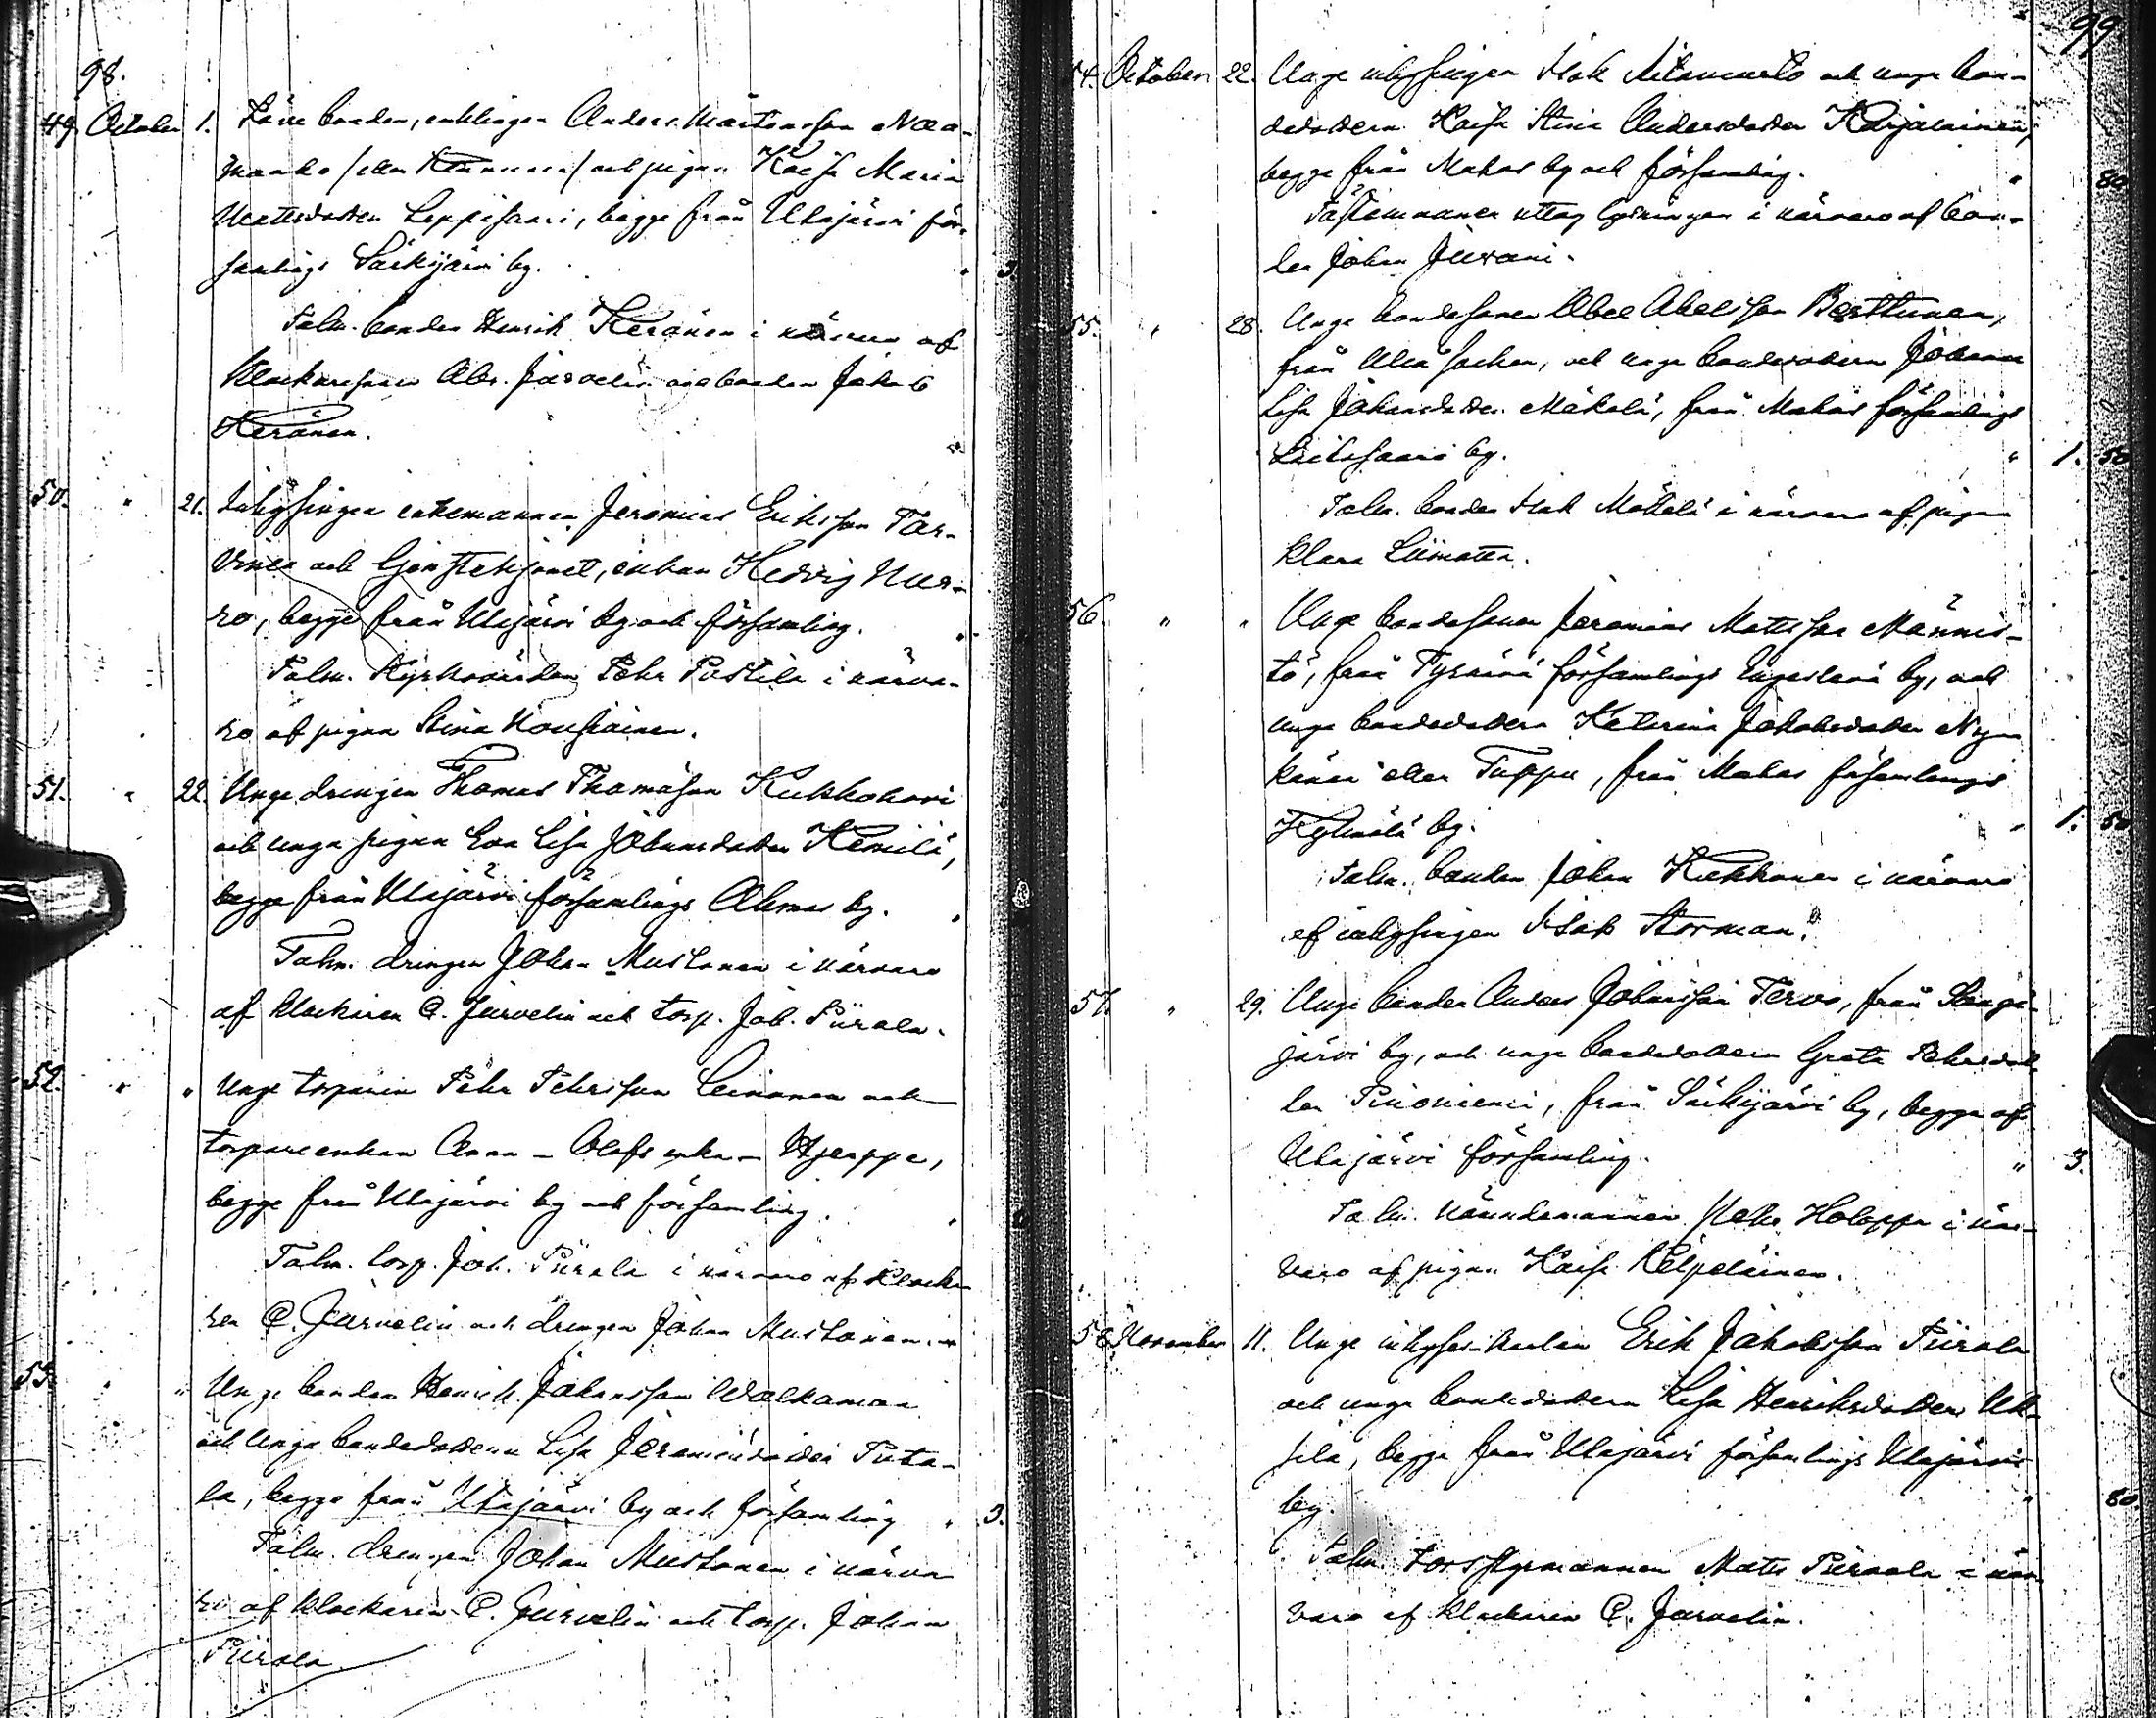 98.
49. October 1. bonden, enklingen Anders Mårtensson Naa-
manko /eller / och pigan Kaisa Maria
Mattsdotter Leppisaari, begge från Utajärvi för-
samlings Särkijärvi by. " 3.
Talm. bonden Henrik Keränen i närvaro af
Klockaresonen Abr. Järvelin och bonden Jakob
Keränen.
50. " 21. Inhysingen enkemannen Jeremias Eriksson Tar-
vinen och tjenstehjonet, enkan Hedvig Nur-
ro, begge från Utajärvi by och församling. "
Talm. Kyrkovärden Pehr Postila i närva-
ro af pigan Stina Housiainen.
51. " 22. Unge drengen Thomas Thomasson Kukkohovi
och unga pigan Eva Lisa Johansdotter Kemilä,
begge från Utajärvi församlings Ahmas by. "
Talm. drengen Johan Mustonen i närvaro
af klockaren C. Järvelin och torp. Joh. Piirala.
52. " " Unge torparen Pehr Pehrsson Leinonen och
torpareenkan Anna - Olofs enka - Hjerppe,
begge från Utajärvi by och församling. "
Talm. torp. Joh. Piirala i närvaro af klocka-
ren C. Järvelin och drengen Johan Mustonen.
53. " " Unge bonden Henrik Johansson Walkaman
och unga bondedottern Lisa Jeremiidotter Puta-
la, begge från Utajärvi by och församling " 3.
Talm. drengen Johan Mustonen i närva-
ro af klockaren C. Järvelin och torp. Johan
Piirala.
99
54. October 22. Unge inhysingen Isak och unga bon-
dedottern Kaisa Stina Andersdotter Karjalainen,
begge från Muhos by och församling. " 80
Fästemannen uttog lysningen i närvaro af bon-
den Johan Juvani.
55. " 28. Unge bondesonen Abel Abelsson Perttunen,
från Uleå socken, och unga bondedottern Johanna
Lisa Johansdotter Mäkelä, från Muhos församlings
Laitasaari by. " 1. 50
Talm. bonden Isak Määttä i närvaro af pigan
Klara Liimatta.
56. " " Unge bondesonen Jeremias Mattsson Männis-
tö, från Tyrnävä församlings Ängeslevä by, och
unga bondedottern Katarina Jakobsdotter Ny-
känen eller Tuppu, från Muhos församlings
Kylmälä by. " 1. 50
Talm. bonden Johan Kukkonen i närvaro
af inhysingen Isak Storman.
57. " 29. Unge bonden Anders Johansson Tervo, från Sangi-
järvi by, och unga bondedottern Greta Pehrsdot-
ter Pinoniemi, från Särkijärvi by, begge af
Utajärvi församling. " 3.
Talm. nämndemannen Pehr Holappa i när-
varo af pigan Kaisa Kilpeläinen.
58. November 11. Unge inhyses-karlen Erik Jakobsson Piirala
och unga bondedottern Lisa Henriksdotter Uk-
kila, begge från Utajärvi församlings Utajärvi
by. " 80
Talm. forsstyrmannen Matts Piirala i när-
varo af klockaren C. Järvelin.